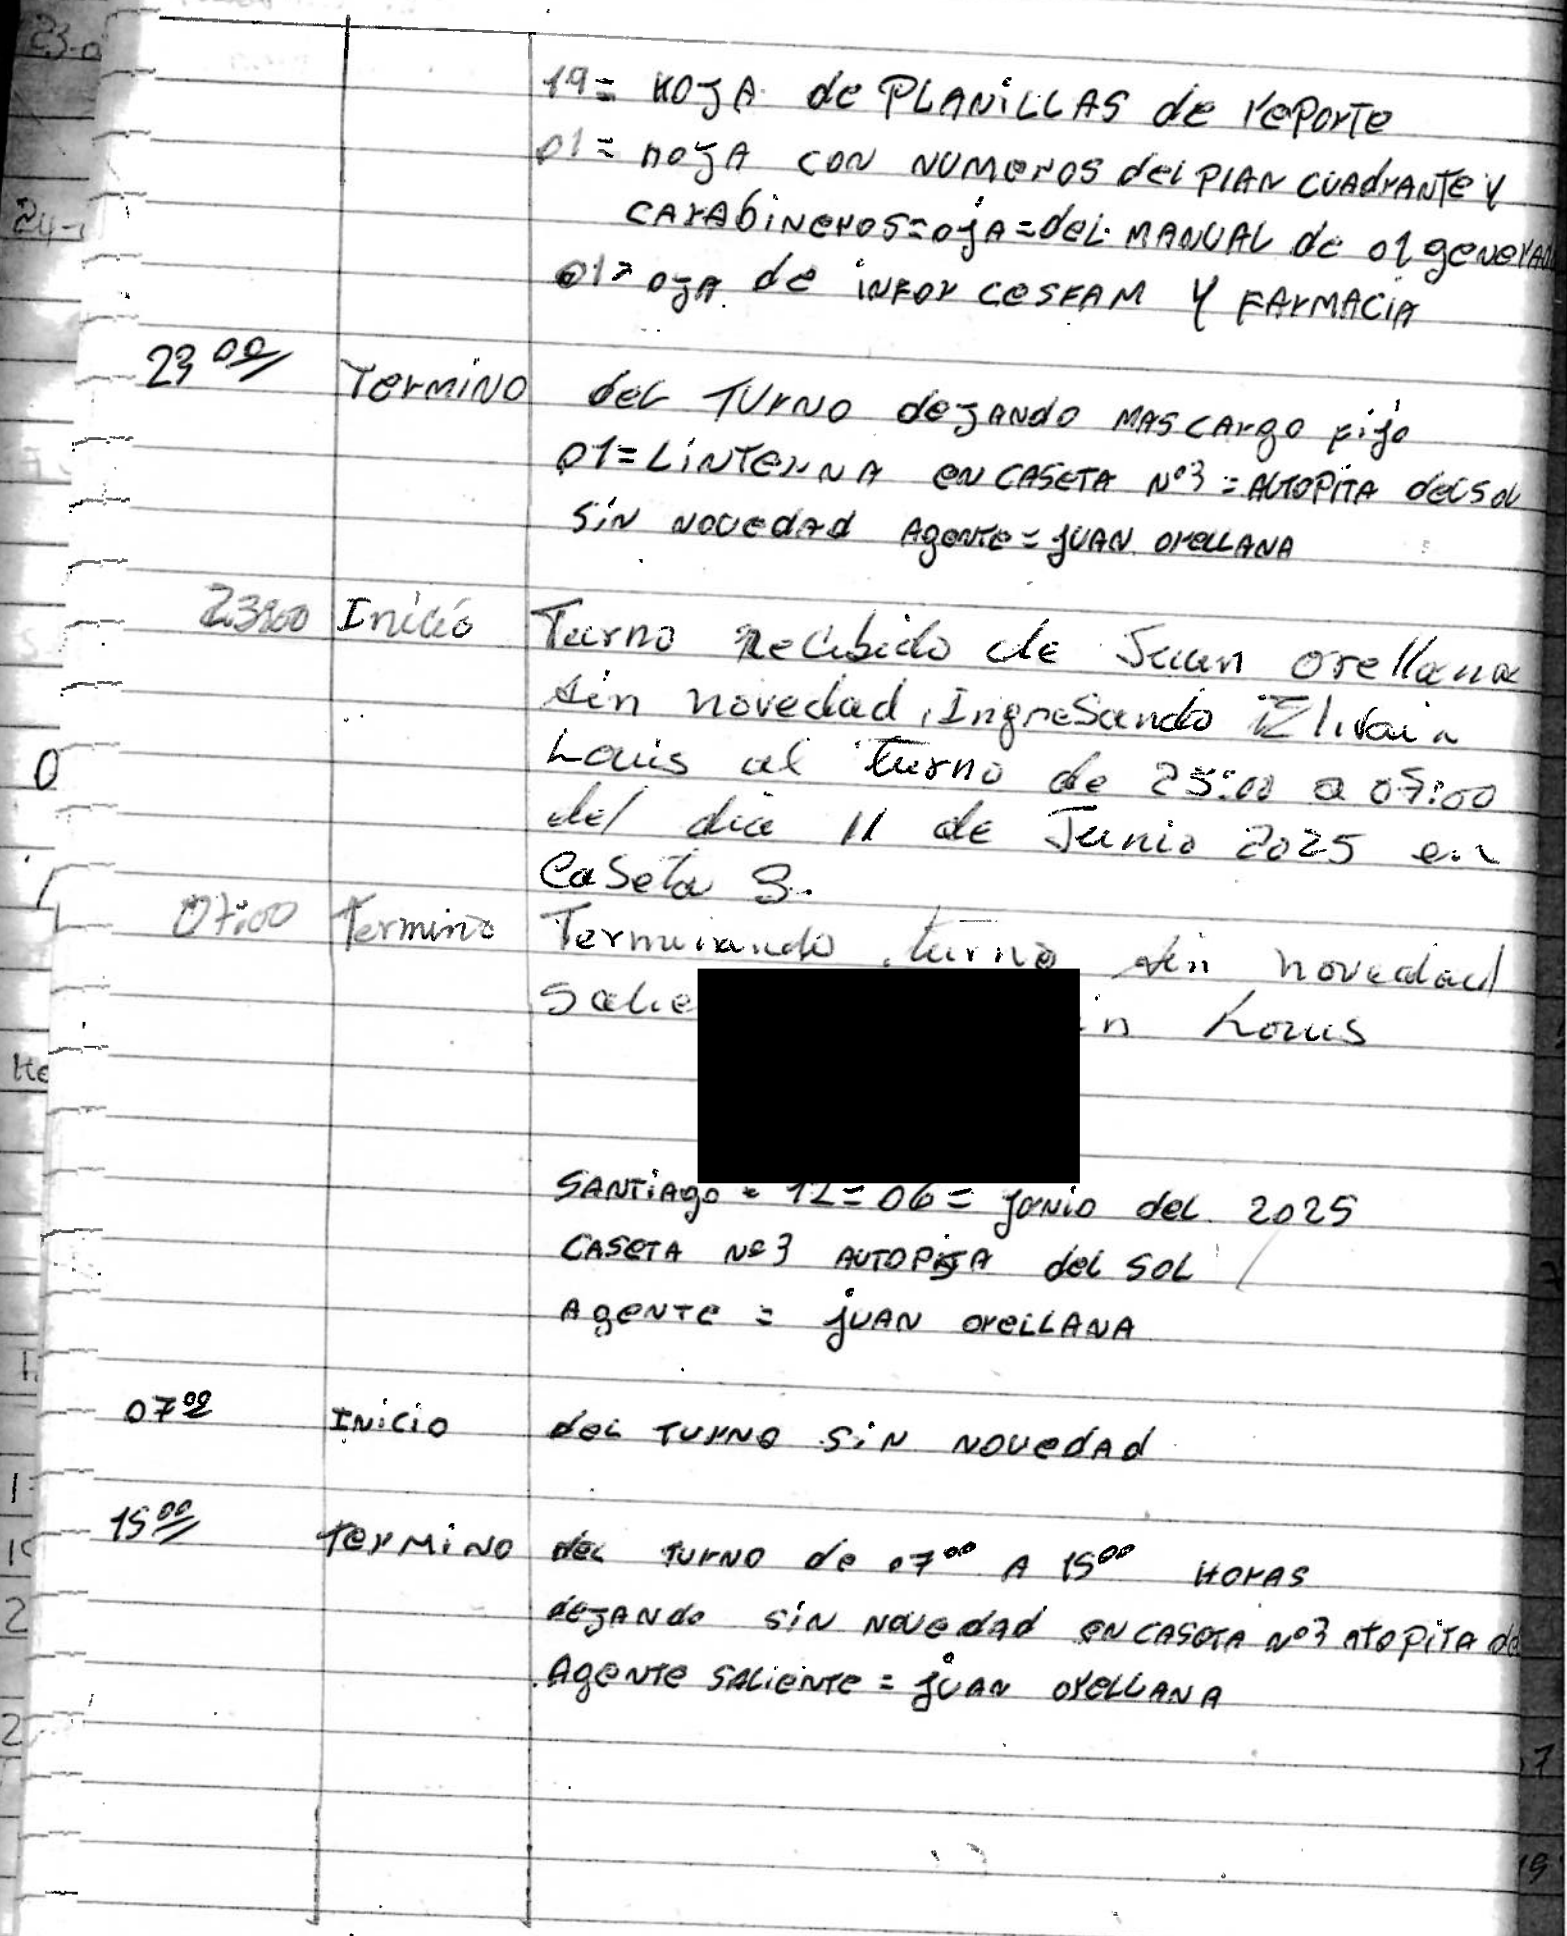 19= HOJA de PLANILLAS de rePorTe
01= hoJA CON NUMEROS del PLAN CUADRANTE Y
CARAbiNEROS=OJA=del MANUAL de 01 generAd
01= OJA de INFOR CESFAM Y FARMACIA
23 00 TERMINO del TURNO deJANDO MAS CARGO fijo
01=LINTERNA EN CASETA Nº3 = AUTOPITA del SOL
SIN NOVEDAD AGENTE = JUAN ORELLANA
23:00 Inicio Turno recibido de Juan Orellana
sin novedad, Ingresando
Louis al turno de 23:00 a 07:00
del dia 11 de Junio 2025 en
Caseta 3.
07:00 Termino Terminando turno sin novedad
Salie in Louis
SANTIAGO = 12=06= junio del 2025
CASETA Nº3 AUTOPISTA del SOL
AGENTE = JUAN ORELLANA
07 00 INICIO del TURNO SIN NOVEDAD
15 00 TERMINO del TURNO de 07 00 A 15 00 HORAS
deJANdo SIN NOVEDAD EN CASETA Nº3 ATOPITA de
AGENTE SALIENTE = JUAN ORELLANA